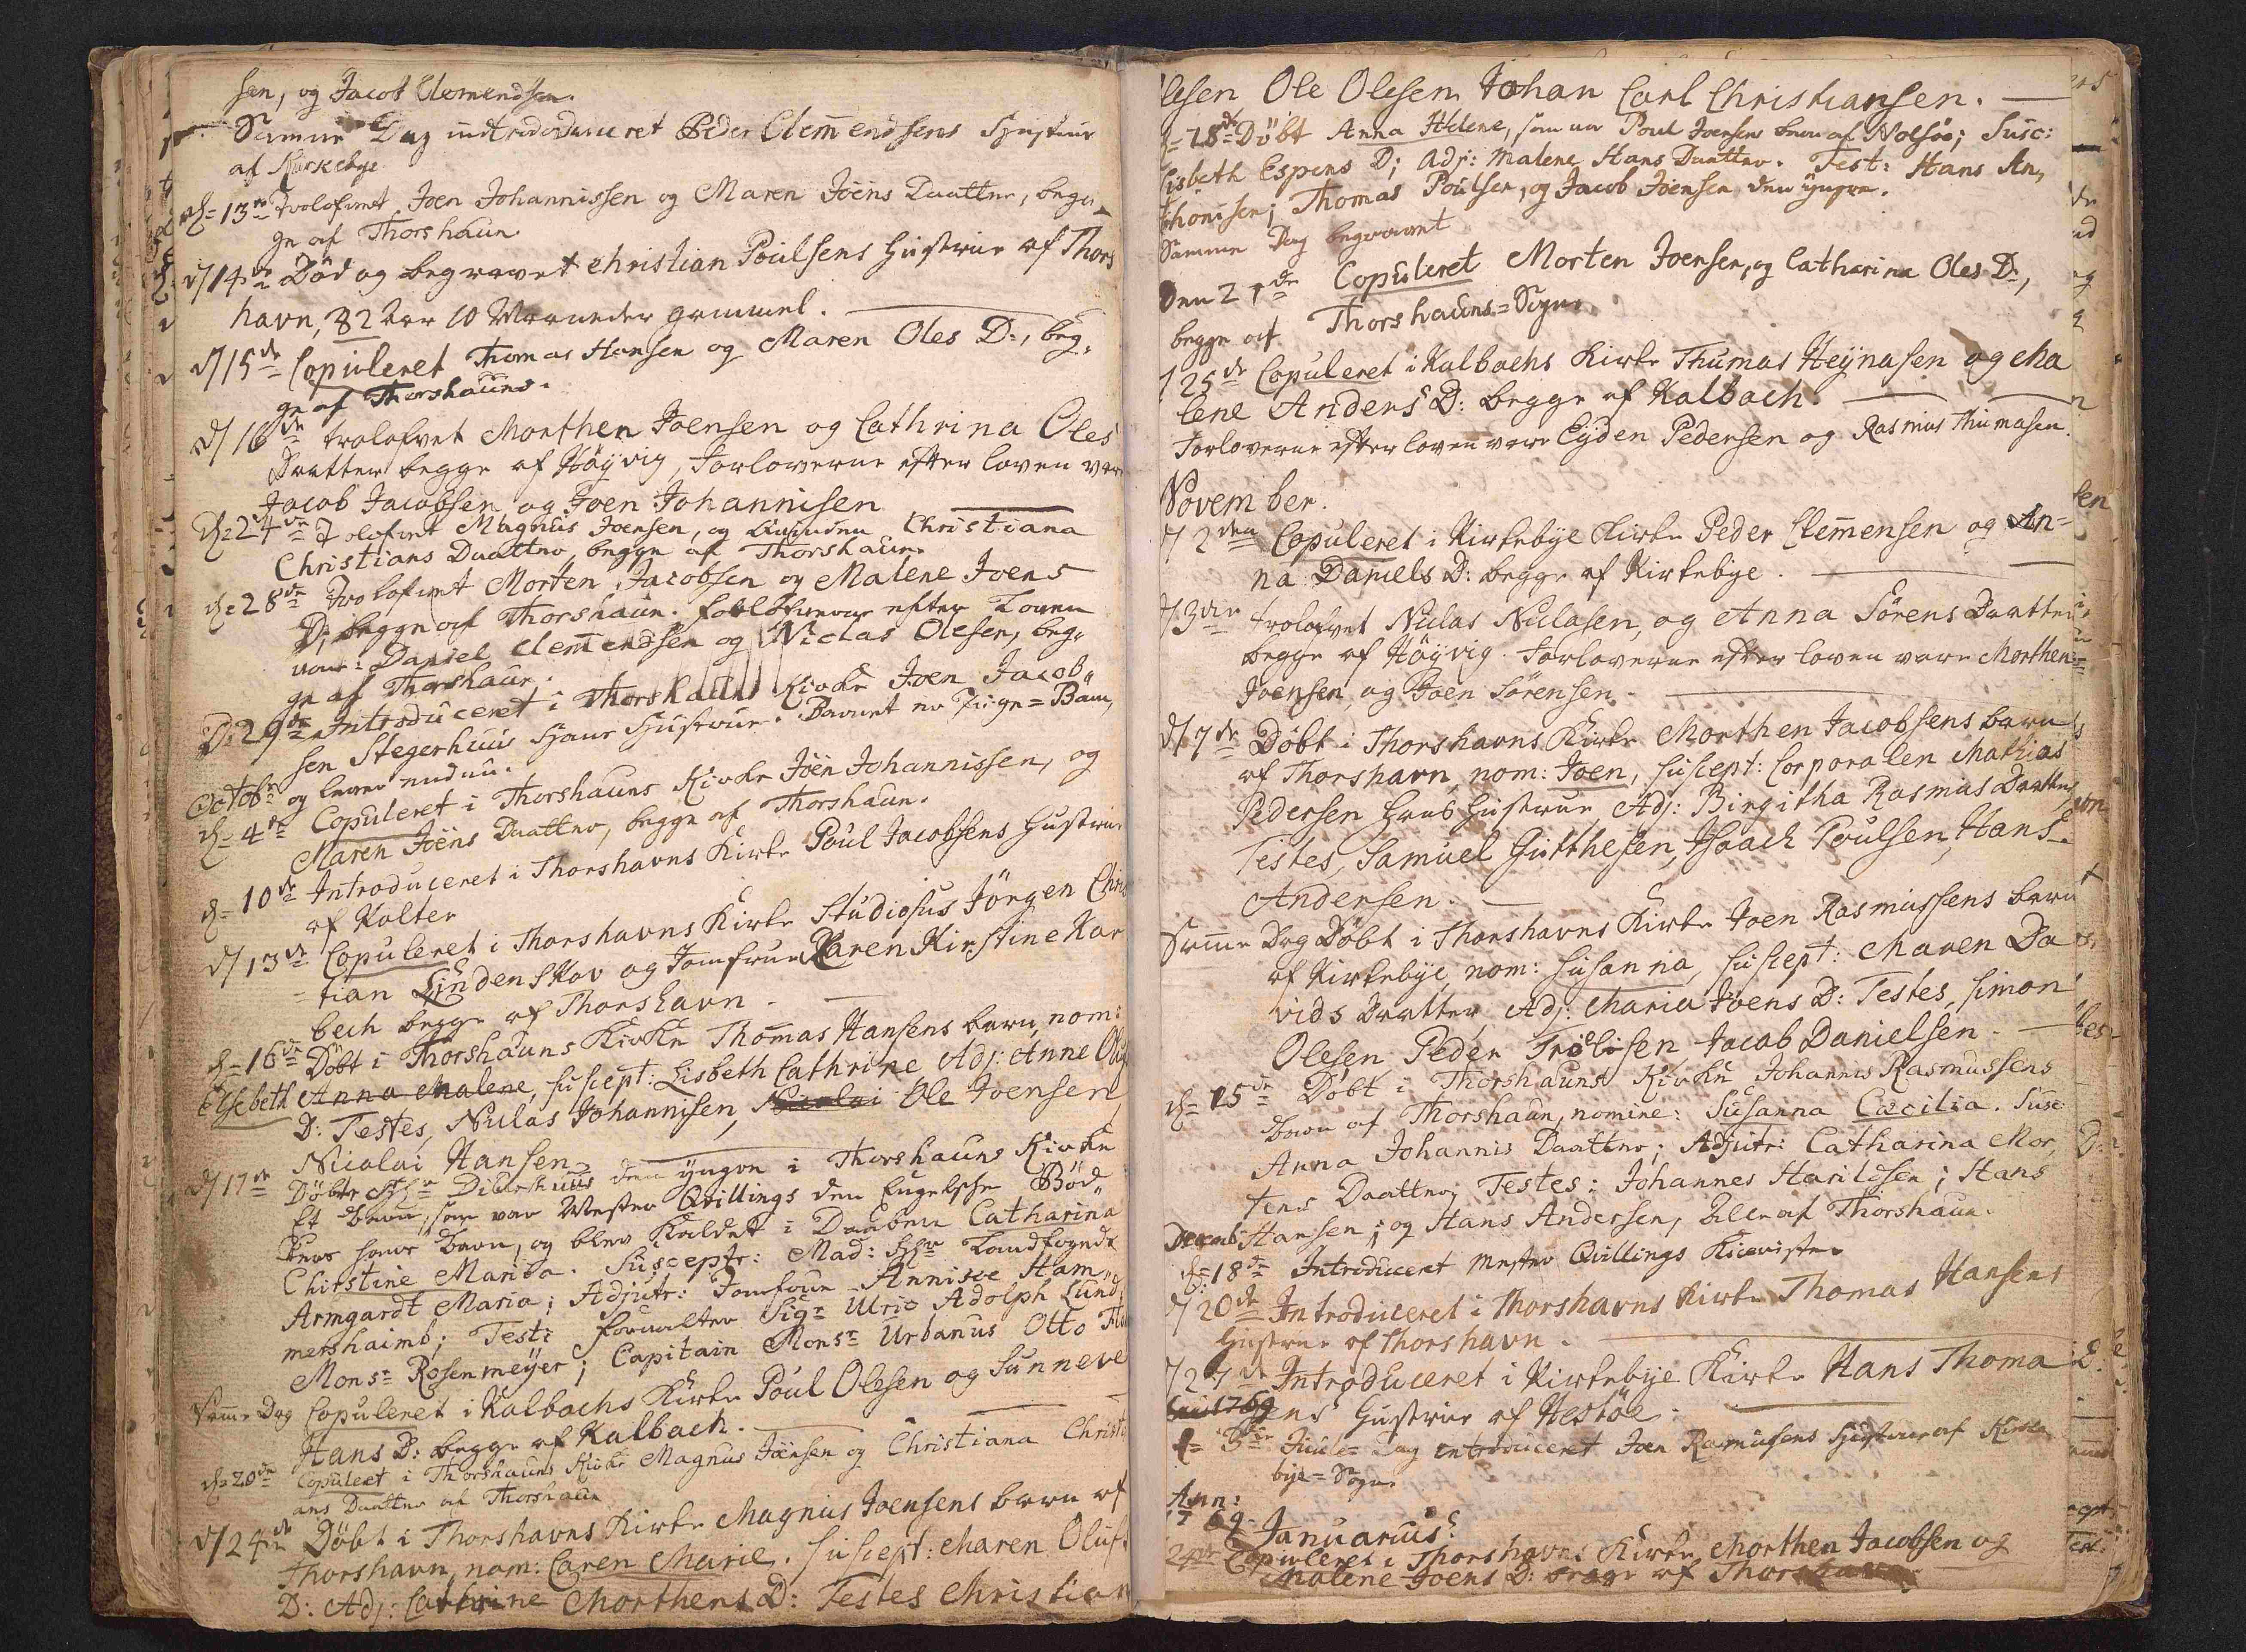 sen, og Jacob Clemendsen.
Samme Dag introduceret Peder Clemendsens Hustrue
af Kirkebye
d= 13de Trolofvet Joen Johannissen og Maren Joens Daatter, beg=
ge af Thorshaun
d/ 14de Död og begravet Christian Poulsens Hustrue af Thors
havn, 82 Aar 10 Maaneder gammel.
d/ 15de Copuleret Thomas Hansen og Maren Oles D:, beg,
ge af Thorshauns.
d/ 16de trolofvet Morthen Joensen og Cathrina Oles
Daatter begge af Höÿvig, Forloverne efter loven var
Jacob Jacobsen og Joen Johannisen
d: 24de Trolofvet Magnus Joensen, og Christiana
Christians Daatter, begge af Thorshaun
d: 28de Trolofvet Morten Jacobsen og Malene Joens
D; begge af Thorshaun. Forlofverne efter Loven
vare: Daniel Clemendsen og Niclas Olesen, beg=
ge af Thorshaun.
D: 29de Introduceret i Thorshauns Kirke Joen Jacob=
sen Stegerhuus Hans Hustrue. Barnet en Pige=Barn,
Octobr og lever endnu.
d= 4de Copuleret i Thorshauns Kirke Joen Johannissen, og
Maren Joens Daatter, begge af Thorshaun.
d= 10de Introduceret i Thorshavns Kirke Poul Jacobsens Hustrue
af Kolter
d/ 13de Copuleret i Thorshavns Kirke Studiosus Jörgen Chris
=tian Lindenskov og Jomfrue Karen Kirstine Har
bech begge af Thorshavn.
d= 16de Döbt i Thorshauns Kirke Thomas Hansens barn, nom:
Elsebeth Anna Malene, suscept: Lisbeth Cathrine, Adj: Anne Ole
D: Testes, Niclas Johannisen, Nicolai Ole Joensen,
Nicolai Hansen
d/ 17de Döbte Hr Diurhuus den ÿngre i Thorshauns Kirke
Et Barn, som var Mester Qvillings den Engelske Böd
kers hans Barn, og blev kaldet i Daaben Catharina
Christine Marita. Susceptr: Mad: Landfogede
Armgardt Maria; Adjutr: Jomfrue Annisse Ham=
mershaimb; Test: Forvalter Sigr Ulric Adolph Lund,
Monsr Rosenmeÿer; Capitain Monsr Urbanus Otto
Samme Dag Copuleret i Kalbachs Kirke Poul Olesen og Sunneve
Hans D: begge af Kalbach.
d= 20de Copuleret i Thorshauns Kirke Magnus Joensen og Christiana Christi
ans Daatter af Thorshaun
d/ 24de Döbt i Thorshavns Kirke Magnus Joensens barn af
Thorshavn, nom: Caren Marie. Suscept: Maren Olufs
D: Adj: Cathrine Morthens D: Testes Christian
lesen Ole Olesen Johan Carl Christiansen.
d= 18de Döbt Anna Helene, som var Poul Joensens barn af Nolsöe; Susc:
Lisbeth Espens D; Adj: Malene Hans Daatter. Test: Hans An,
thonisen; Thomas Poulsen, og Jacob Joensen den ÿngre.
Samme Dag begravet
Den 21de Copuleret Morten Joensen, og Catharina Oles D:,
begge af Thorshauns=Sogn.
/ 25de Copuleret i Kalbachs Kirke Thumas Heÿnasen og Ma
lene Anders D: begge af Kalbach.
Forloverne efter loven vare Eÿden Pedersen og Rasmus Thumasen.
November.
/ 2den Copuleret i Kirkebÿe Kirke Peder Clemensen og An=
na Daniels D: begge af Kirkebÿe.
/ 3die trolofvet Niclas Niclasen, og Anna Sörens Daatter
begge af Höÿvig. Forloverne efter loven vare Morthen
Joensen, og Joen Sörensen.
d/ 7de Döbt i Thorshavns Kirke Morthen Jacobsens barn
af Thorshavn, nom: Joen, suscept: Corporalen Mathias
Pedersen Hans Hustrue, Adj: Birgitha Rasmus Daatter,
Testes, Samuel Gutthesen, Isaach Poulsen, Hans
Andersen.
Samme Dag Döbt i Thorshavns Kirke Joen Rasmussens barn
af Kirkebÿe, nom: Susanna, suscept: Maren Da
vids Daatter, Adj: Maria Joens D: Testes, Simon
Olesen Peder Jacob Danielsen.
d= 15de Döbt i Thorshauns Kirke Johannis Rasmussens
Barn af Thorshaun, nomine: Susanna Cæcilia. Susc:
Anna Johannis Daatter; Adjutr: Catharina Mor,
tens Daatter, Testes: Johannes Harildsen; Hans
Decemb: Hansen; og Hans Andersen, alle af Thorshaun.
d= 18de Introduceret Mester Qvillings
d/ 20de Introduceret i Thorshavns Kirke Thomas Hansens
Hustrue af Thorshavn.
/ 27de Introduceret i Kirkebÿe Kirke Hans Thoma
sens Hustrue af Hestöe.
d= 3die Juule=Dag introduceret Joen Rasmussens Hustrue af Kirke
bÿe=Sogn
Ann:
1769. Januarius.
24de Copuleret i Thorshavns Kirke Morthen Jacobsen og
Malene Joens D: begge af Thorshavn.